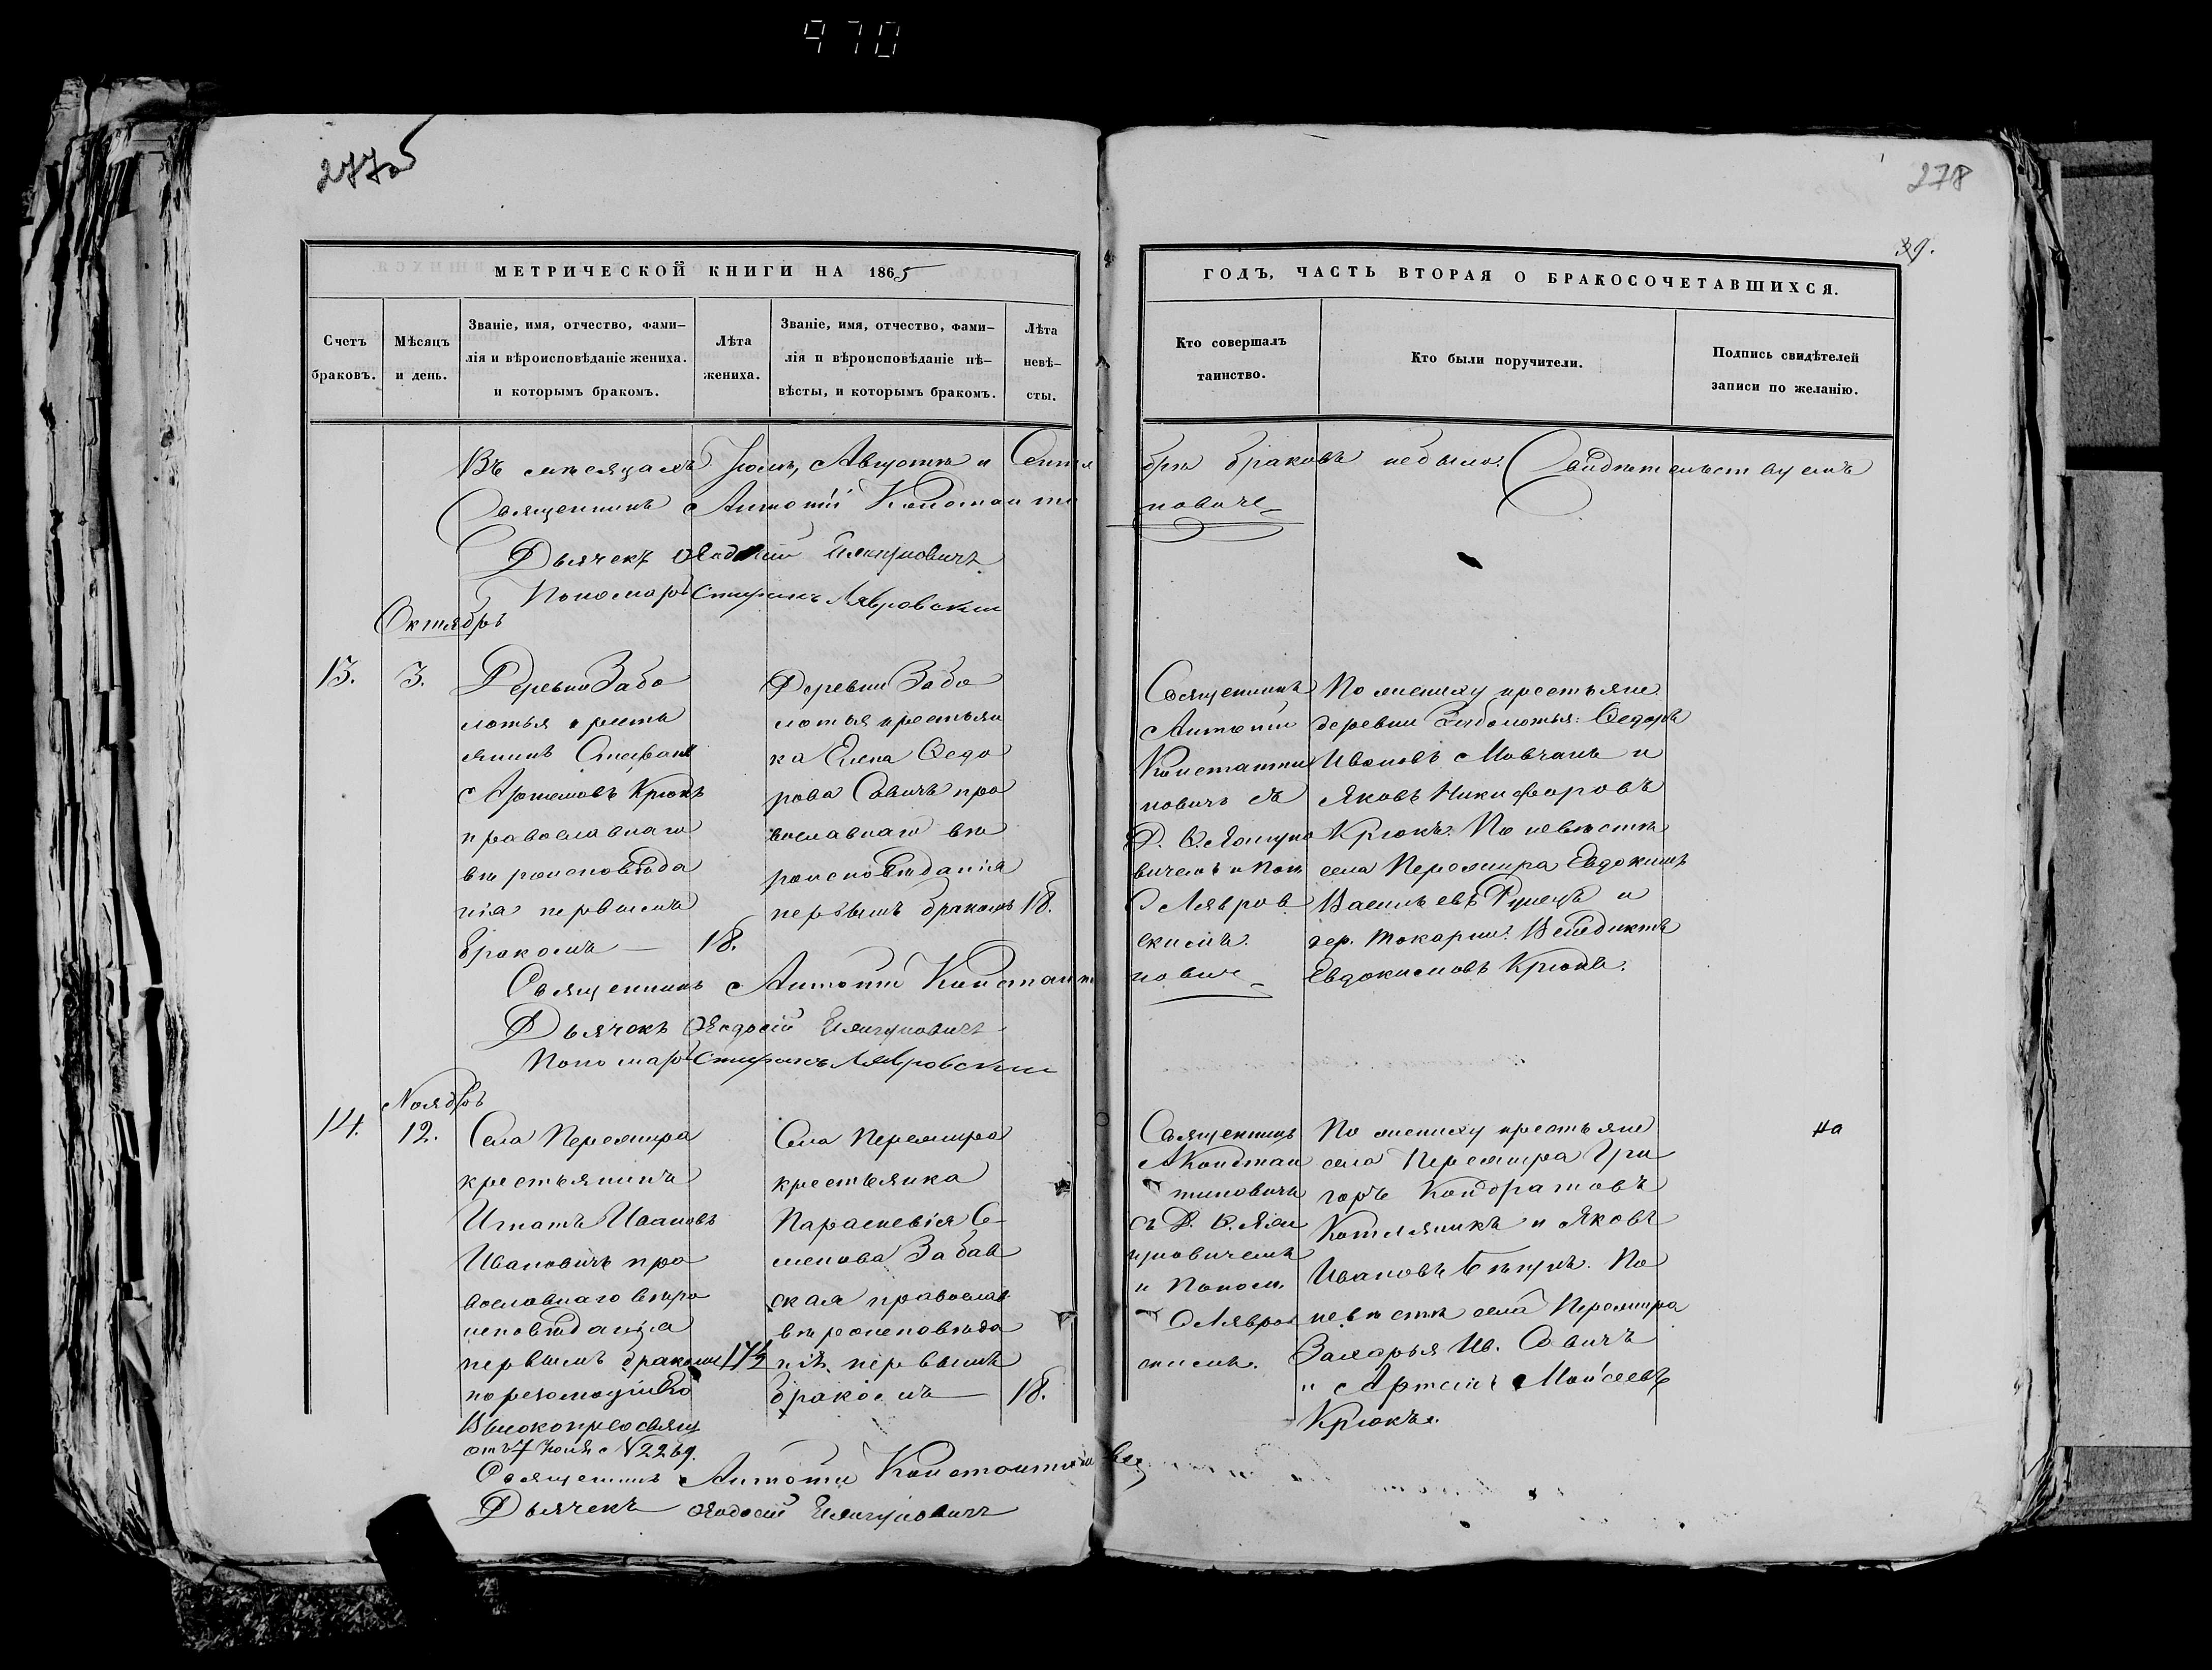 970
277об
278
39.
МЕТРИЧЕСКОЙ КНИГИ НА 1865
ГОДЪ, ЧАСТЬ ВТОРАЯ О БРАКОСОЧЕТАВШИХСЯ.
Счетъ
браковъ.
Мѣсяцъ
и день.
Званіе, имя, отчество, фами-
лія и вѣроисповѣданіе жениха.
и которымъ бракомъ.
Лѣта
жениха.
Званіе, имя, отчество, фами-
лія и вѣроисповѣданіе нѣ-
вѣсты, и которымъ бракомъ.
Лѣта
невѣ-
сты.
Кто совершалъ
таинство.
Кто были поручители.
Подпись свидѣтелей
записи по желанію.
Въ мѣсяцахъ Іюлѣ, Августѣ и Сентя
брѣ браковъ небыло. Свидѣтельствуемъ
Священникъ Антоній Константи
новиче
Дьячекъ Ѳеодосій
Пономарь Лявровскій
Октябрь
13.
3.
Деревни Забо
лотья кресть
янинъ Стефанъ
Артемовъ Крюкъ
православнаго
вѣроисповѣда
нія первымъ
бракомъ —
18.
Деревни Забо
лотья крестьян
ка Елена Ѳедо
рова Савичъ пра
вославнаго вѣ
роисповѣданія
первымъ бракомъ
18.
Священникъ
Антоній
Константи
новичъ съ
Д. Ѳ.
вичемъ и Пон
С Лявров
скимъ.
По жениху крестьяне
деревни Заболотья: Ѳедоръ
Ивановъ Мовчанъ и
Яковъ Никифоровъ
Крюкъ. По невѣстѣ
села Перемира Евдокимъ
Васильевъ и
дер. Токарни: Венедиктъ
Евдокимовъ Крюкъ.
Священникъ Антоній Констант
новиче
Дьячокъ Ѳеодосій
Пономарь Лявровскій
Ноябрь
14.
12.
Села Перемира
крестьянинъ
Игнатъ Ивановъ
Ивановичъ пра
вославнаго вѣро
исповѣданія
первымъ бракомъ
17½
по резолюціи Его
Высокопреосвящ
отъ 7 Іюля № 2269.
Села Перемира
крестьянка
Параскевія Се-
менова Забав
ская православ
вѣроисповѣда
нія первымъ
бракомъ —
18.
Священникъ
А Констан
тиновичъ
съ Д. Ѳ.
новичемъ
и Поном.
С Лявров
скимъ.
По жениху крестьяне
села Перемира Гри
горъ Кондратовъ
Котляникъ и Яковъ
Ивановъ. По
невѣстѣ села Перемира
Захарья Ив. Савичъ
и Артемъ Мойсеевъ
Крюкъ.
на
Священникъ Антоній Константинове
Дьячекъ Ѳеодосій